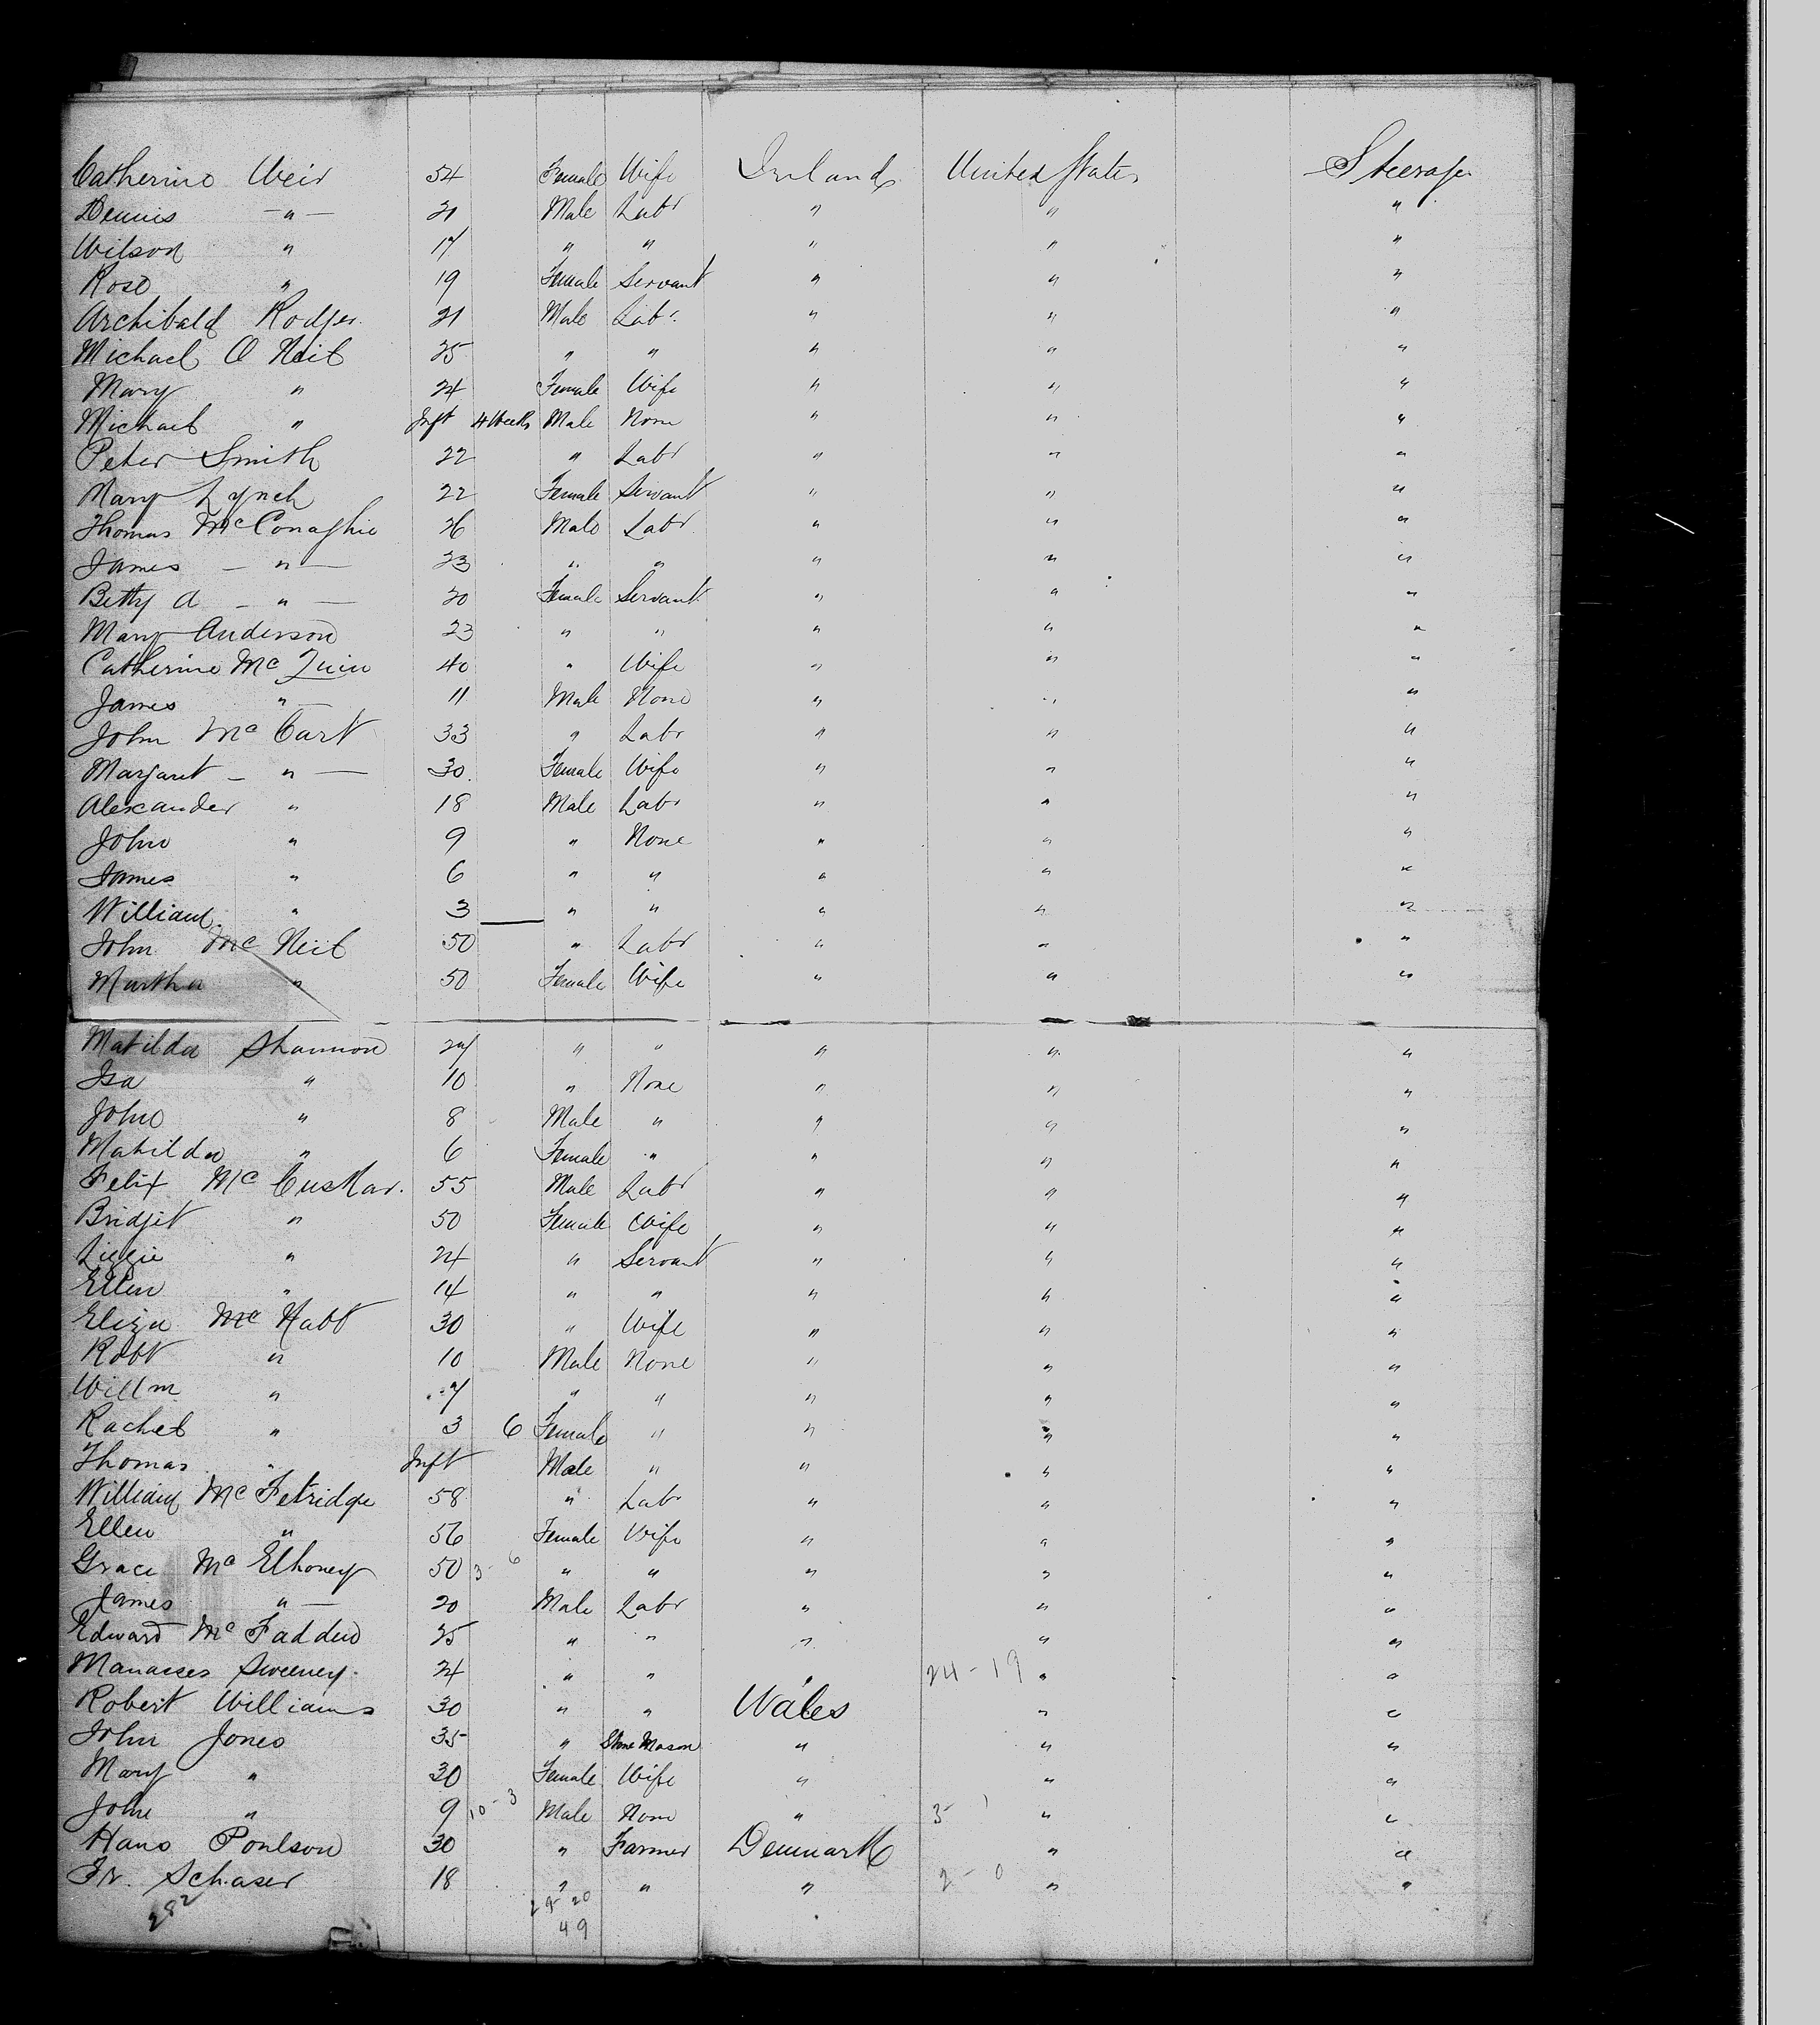 Catherine Weir 54 Female Wife Ireland United States Steerage
Dennis — " — 21 Male Labr " " "
Wilson " 17 " " " " "
Rose " 19 Female Servant " " "
Archibald Rodger 21 Male Labr. " " "
Michael O Neil 25 " " " " "
Mary " 24 Female Wife " " "
Michael " Inft 4 Weeks Male None " " "
Peter Smith 22 " Labr " " "
Mary Lynch 22 Female Servant " " "
Thomas McConaghie 26 Male Labr " " "
James — " — 23 " " " " "
Betty A — " — 20 Female Servant " " "
Mary Anderson 23 " " " " "
Catherine Mc Quin 40 " Wife " " "
James " 11 Male None " " "
John Mc Cart 33 " Labr " " "
Margaret — " — 30. Female Wife " " "
Alexander " 18 Male Labr " " "
John " 9 " None " " "
James " 6 " " " " "
William " 3 " " " " "
John Mc Neil 50 " Labr " " "
Martha " 50 Female Wife " " "
Matilda Shannon 27 " " " " "
Isa " 10 " None " " "
John " 8 Male " " " "
Matilda " 6 Female " " " "
Felix Mc Cuskar. 55 Male Labr " " "
Bridjet " 50 Female Wife " " "
Lizzie " 24 " Servant " " "
Ellen " 14 " " " " "
Eliza Mc Nabb 30 " Wife " " "
Robt " 10 Male None " " "
Willm " 7 " " " " "
Rachel " 3 6 Female " " " "
Thomas " Inft Male " " " "
William McFetridge 58 " Labr " " "
Ellen " 56 Female Wife " " "
Grace Mc Elhoney 50 3-6 " " " " "
James " — 20 Male Labr " " "
Edward McFadden 25 " " " " "
Manasses Sweeney. 24 " " " 24-19 " "
Robert Williams 30 " " Wales " "
John Jones 35 " Stone Mason " " "
Mary " 30 Female Wife " " "
John " 9 10-3 Male None " 3-1 " "
Hans Poulson 30 " Farmer Denmark " "
Fr. Schaser 18 " " " 2-0 " "
282 29-20
49